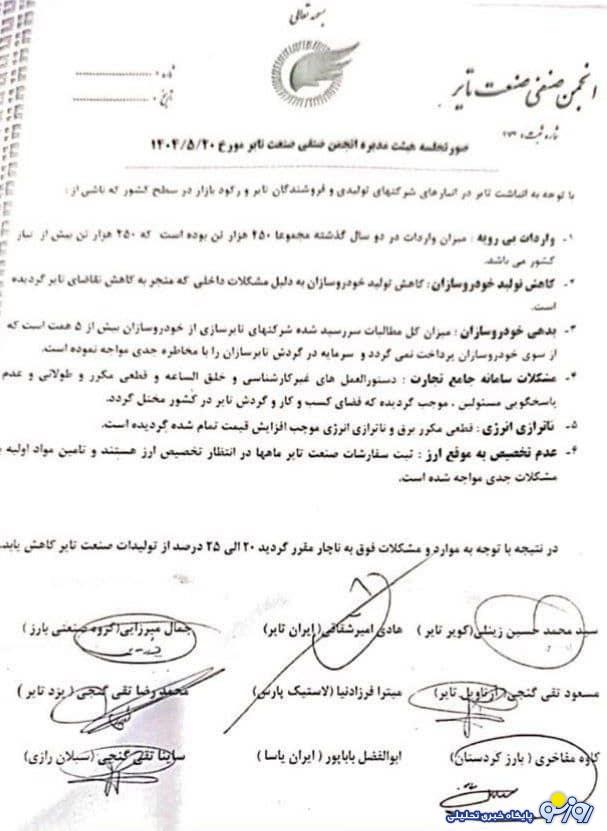 بسمه تعالی
انجمن صنفی صنعت تایر
شماره ثبت ،
شماره :
تاریخ :
صورتجلسه هیئت مدیره انجمن صنفی صنعت تایر مورخ ۱۴۰۴/۵/۲۰
با توجه به انباشت تایر در انبارهای شرکتهای تولیدی و فروشندگان تایر و رکود بازار در سطح کشور که ناشی از :
۱- واردات بی رویه : میزان واردات در دو سال گذشته مجموعا ۴۵۰ هزار تن بوده است که ۲۵۰ هزار تن بیش از نیاز
کشور می باشد.
۲- کاهش تولید خودروسازان : کاهش تولید خودروسازان به دلیل مشکلات داخلی که منجر به کاهش تقاضای تایر گردیده
است.
۳- بدهی خودروسازان : میزان کل مطالبات سررسید شده شرکتهای تایرسازی از خودروسازان بیش از ۵ همت است که
از سوی خودروسازان پرداخت نمی گردد و سرمایه در گردش تایرسازان را با مخاطره جدی مواجه نموده است.
۴- مشکلات سامانه جامع تجارت : دستورالعمل های غیرکارشناسی و خلق الساعه و قطعی مکرر و طولانی و عدم
پاسخگویی مسئولین ، موجب گردیده که فضای کسب و کار و گردش تایر در کشور مختل گردد.
۵- ناترازی انرژی : قطعی مکرر برق و ناترازی انرژی موجب افزایش قیمت تمام شده گردیده است.
۶- عدم تخصیص به موقع ارز : ثبت سفارشات صنعت تایر ماهها در انتظار تخصیص ارز هستند و تامین مواد اولیه با
مشکلات جدی مواجه شده است.
در نتیجه با توجه به موارد و مشکلات فوق به ناچار مقرر گردید ۲۰ الی ۲۵ درصد از تولیدات صنعت تایر کاهش یابد.
سید محمد حسین زینلی(کویر تایر ) هادی امیرشقاقی( ایران تایر) جمال میرزایی(گروه صنعتی بارز )
مسعود تقی گنجی(آرتاویل تایر) میترا فرزادنیا (لاستیک پارس) محمد رضا تقی گنجی ( یزد تایر )
کاوه مفاخری ( بارز کردستان) ابوالفضل باباپور ( ایران یاسا ) ساینا تقی گنجی (سبلان رازی)
روز نو
پایگاه خبری تحلیلی